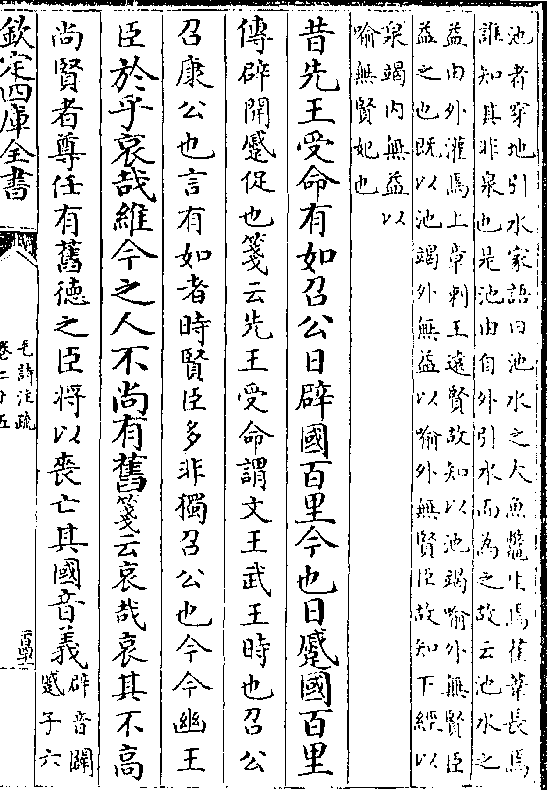 池者穿地引水家語曰池水之大魚鼈生焉萑葦長焉
誰知其非泉也是池由自外引水而為之故云池水之
益由外灌焉上章刺王遠賢故知以池竭喻外無賢臣
益之也既以池竭外無益以喻外無賢臣故知下經以
泉竭内無益以
喻無賢妃也
昔先王受命有如召公日辟國百里今也日蹙國百里
傳辟開蹙促也箋云先王受命謂文王武王時也召公
召康公也言有如者時賢臣多非獨召公也今今幽王
臣於乎哀哉維今之人不尚有舊箋云哀哉哀其不高
尚賢者尊任有舊德之臣將以喪亡其國音義辟音闢
蹙子六
欽定四庫全書
毛詩注疏
卷二十五